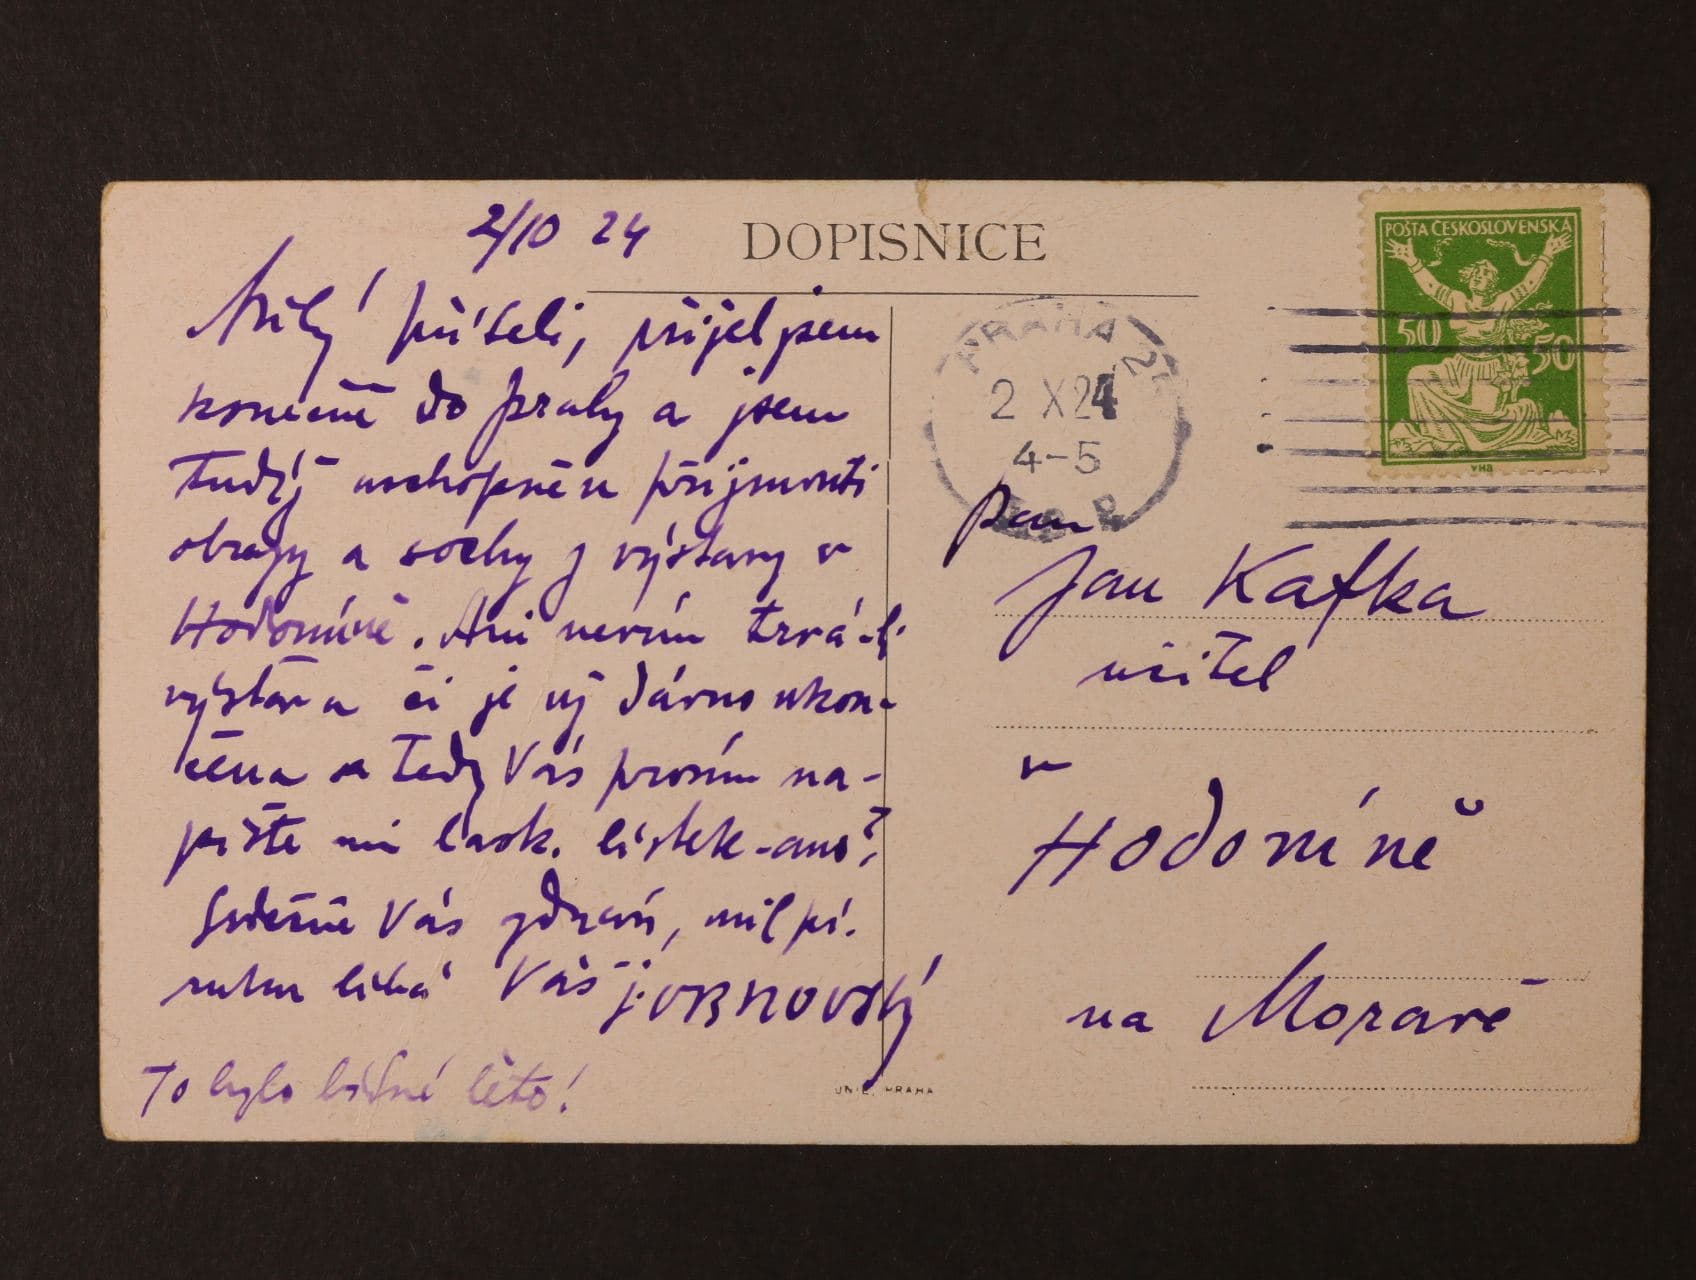 2/10 24
DOPISNICE
POŠTA ČESKOSLOVENSKÁ
50 50
VHB
PRAHA
2 X 24
4-5
Milý příteli, přijel jsem
konečně do Prahy a jsem
tudíž uschopněn přijmouti
obrazy a sochy z výstavy v
Hodoníně. Ani nevím trvá-li
výstava či je již dávno ukon-
čena a tedy Vás prosím na-
pište mi lask. lístek - ano?
Srdečně Vás zdraví, mil pí.
ruku líbá Váš
To bylo bídné léto!
UNIE, PRAHA
Pan
Jan Kafka
učitel
v
Hodoníně
na Moravě